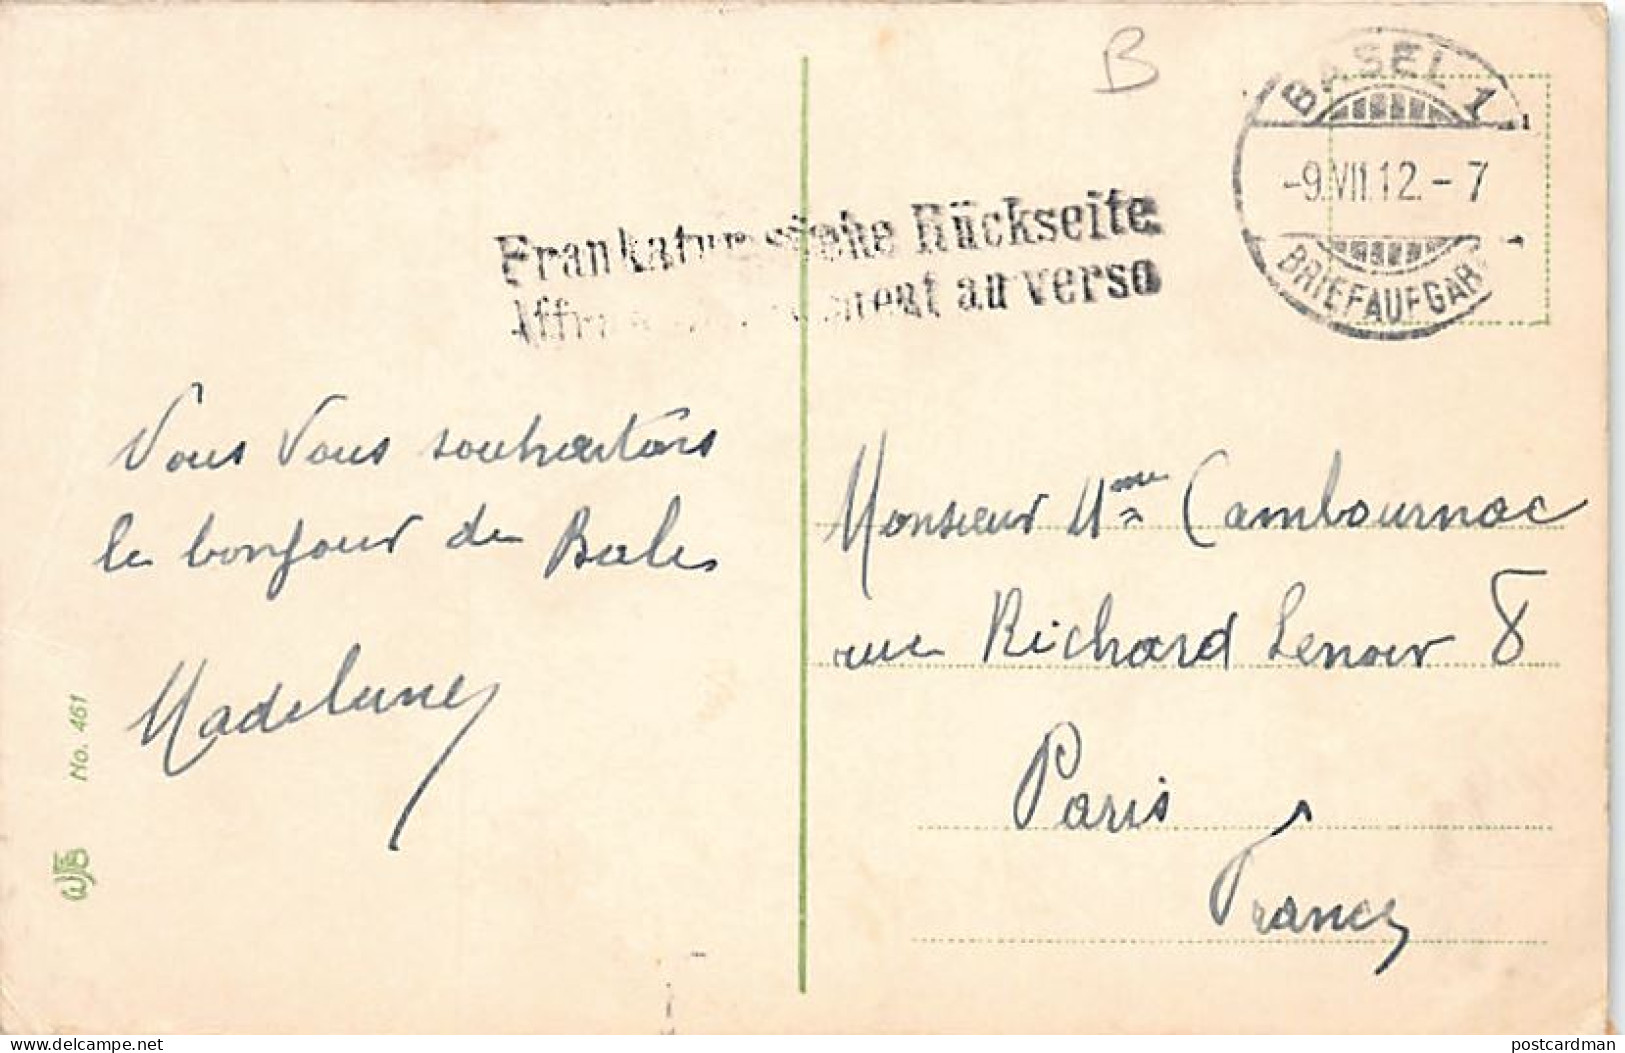 B
BASEL 1
-9.VII.12.-7
BRIEFAUFGABE
Frankatur siehe Rückseite
Affranchissement au verso
Vous Vous souhaitons
le bonjour de Bale
Madeleine
Monsieur Mme Cambournac
rue Richard Lenoir 8
Paris
France
No. 461
delcampe.net
postcardman